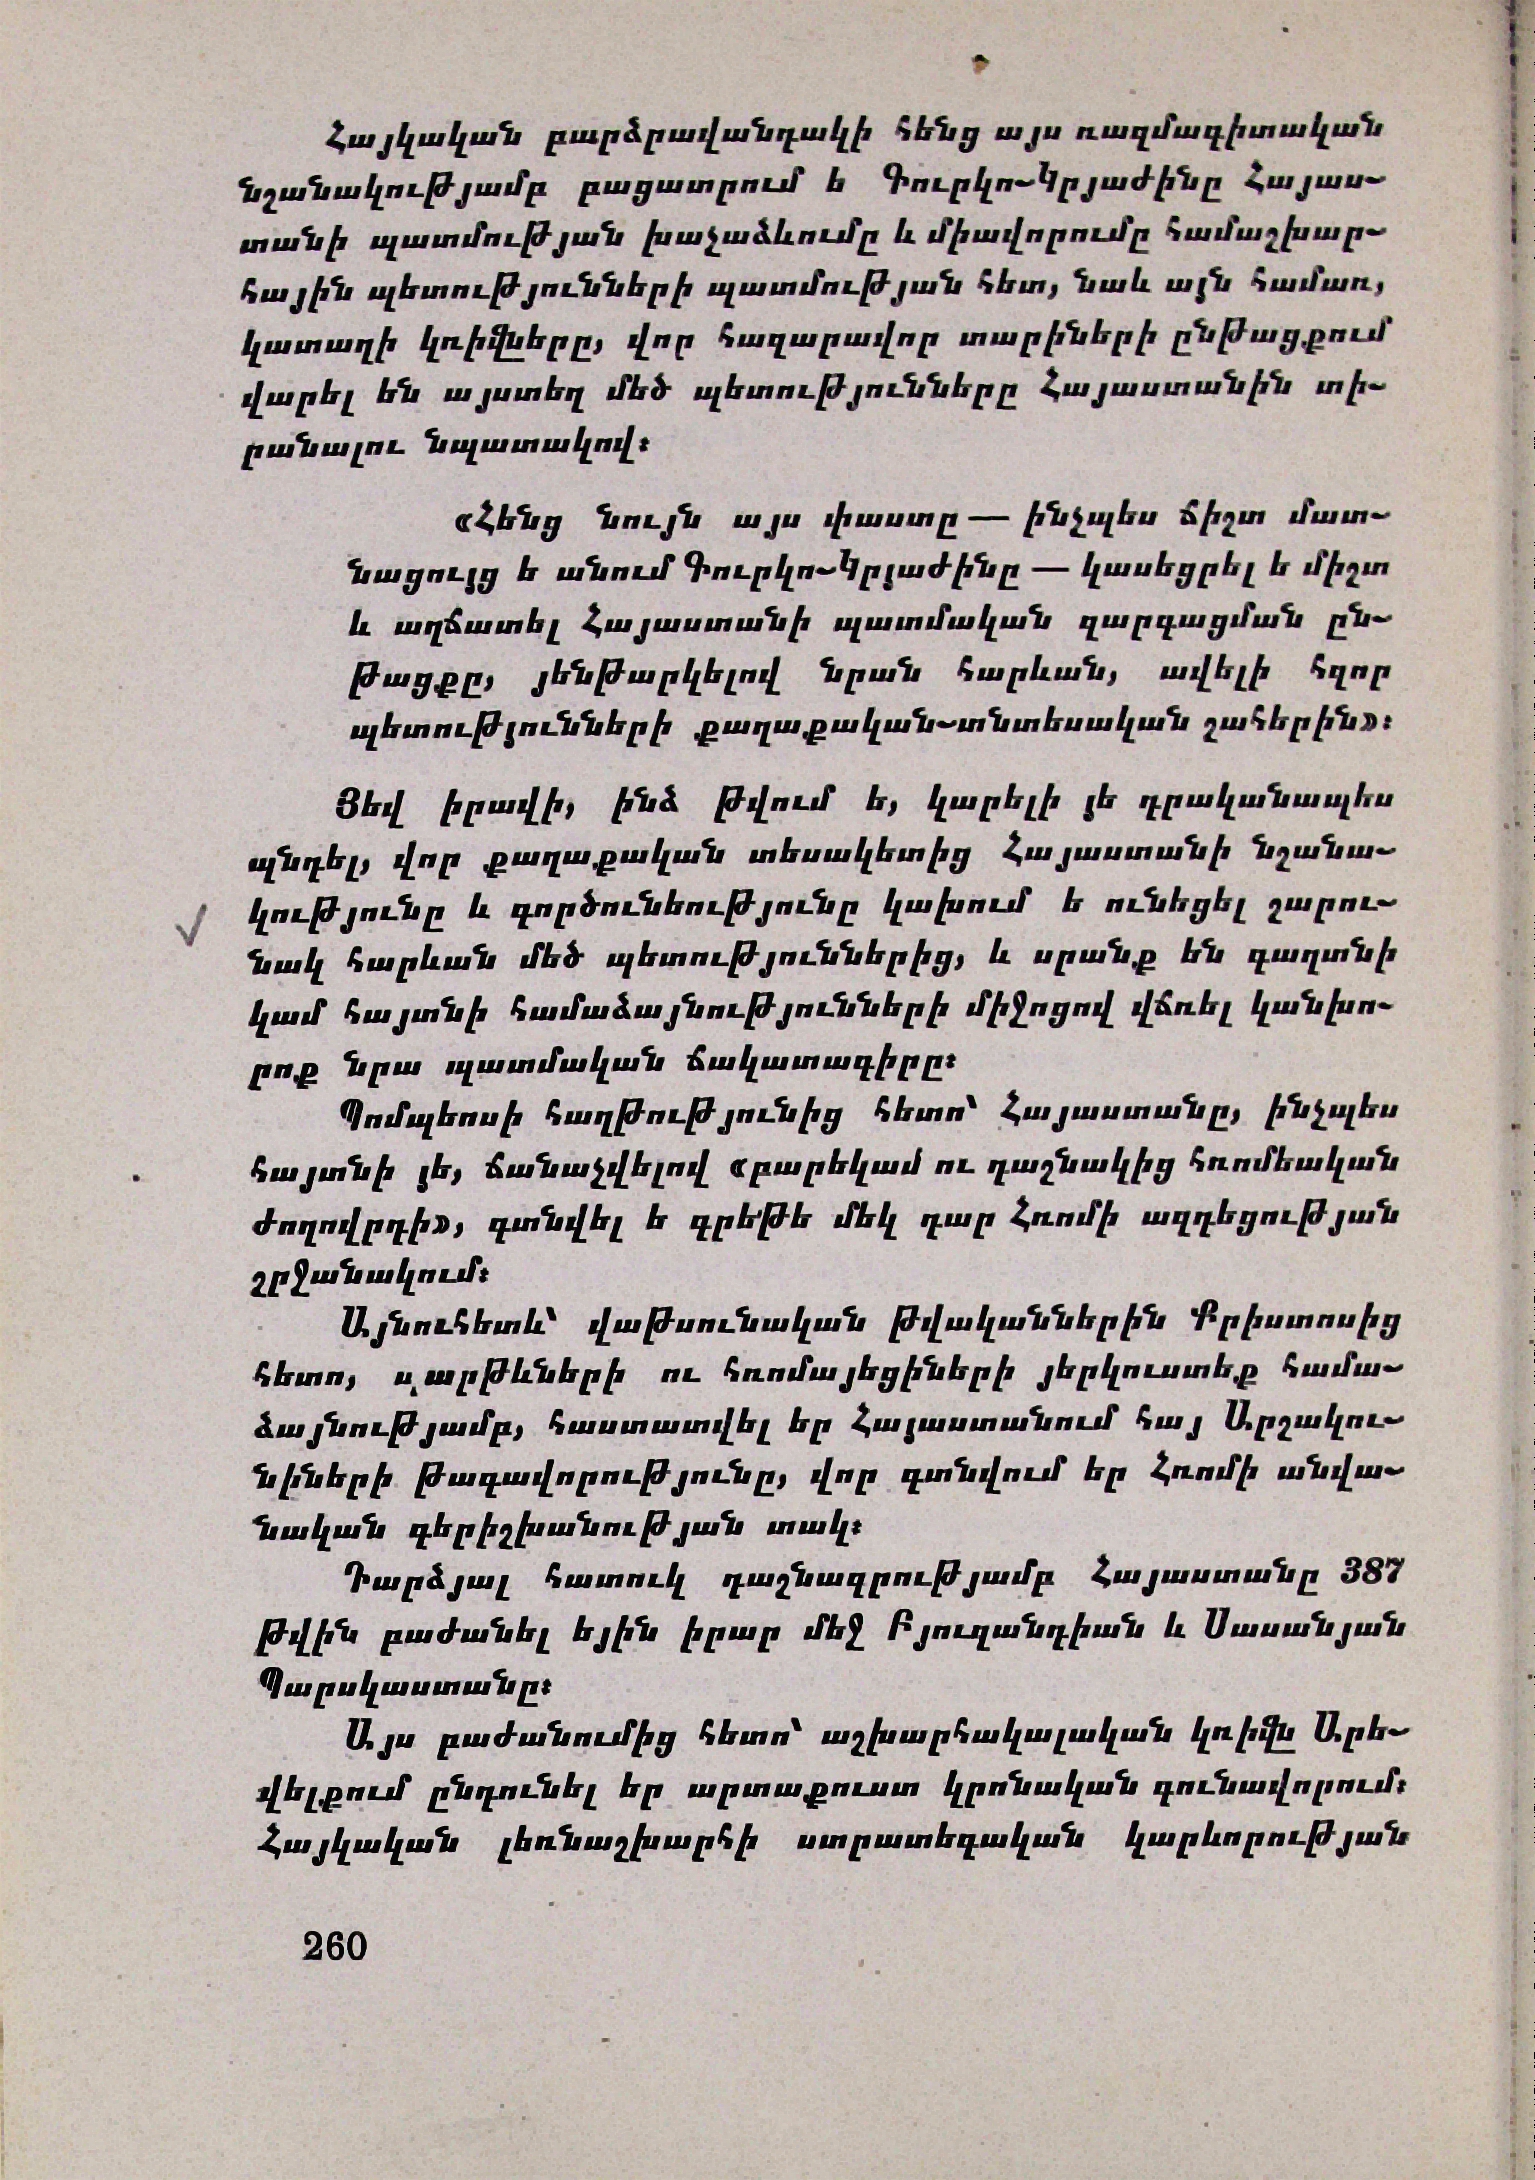 Հայկական բարձրավանդակի հենց այս ռազմագիտական
նշանակությամբ բացատրում ե Գուրկո-Կրյաժինը Հայաս-
տանի պատմության խաչաձևումը և միավորումը համաշխար-
հային պետությունների պատմության հետ, նաև այն համառ,
կատաղի կռիվները, վոր հազարավոր տարիների ընթացքում
վարել են այստեղ մեծ պետությունները Հայաստանին տի-
րանալու նպատակով։
«Հենց նույն այս փաստը — ինչպես ճիշտ մատ-
նացույց ե անում Գուրկո-Կրյաժինը — կասեցրել ե միշտ
և աղճատել Հայաստանի պատմական զարգացման ըն-
թացքը, յենթարկելով նրան հարևան, ավելի հզոր
պետությունների քաղաքական-տնտեսական շահերին»։
Յեվ իրավի, ինձ թվում ե, կարելի յե դրականապես
պնդել, վոր քաղաքական տեսակետից Հայաստանի նշանա-
կությունը և գործունեությունը կախում ե ունեցել շարու-
նակ հարևան մեծ պետություններից, և սրանք են գաղտնի
կամ հայտնի համաձայնությունների միջոցով վճռել կանխո-
րոք նրա պատմական ճակատագիրը։
Պոմպեոսի հաղթությունից հետո՝ Հայաստանը, ինչպես
հայտնի յե, ճանաչվելով «բարեկամ ու դաշնակից հռոմեական
ժողովրդի», գտնվել ե գրեթե մեկ դար Հռոմի ազդեցության
շրջանակում։
Այնուհետև՝ վաթսունական թվականներին Քրիստոսից
հետո, պարթևների ու հռոմայեցիների յերկուստեք համա-
ձայնությամբ, հաստատվել եր Հայաստանում հայ Արշակու-
նիների թագավորությունը, վոր գտնվում եր Հռոմի անվա-
նական գերիշխանության տակ։
Դարձյալ հատուկ դաշնագրությամբ Հայաստանը 387
թվին բաժանել եյին իրար մեջ Բյուզանդիան և Սասանյան
Պարսկաստանը։
Այս բաժանումից հետո՝ աշխարհակալական կռիվն Արե-
վելքում ընդունել եր արտաքուստ կրոնական գունավորում։
Հայկական լեռնաշխարհի ստրատեգական կարևորության
260